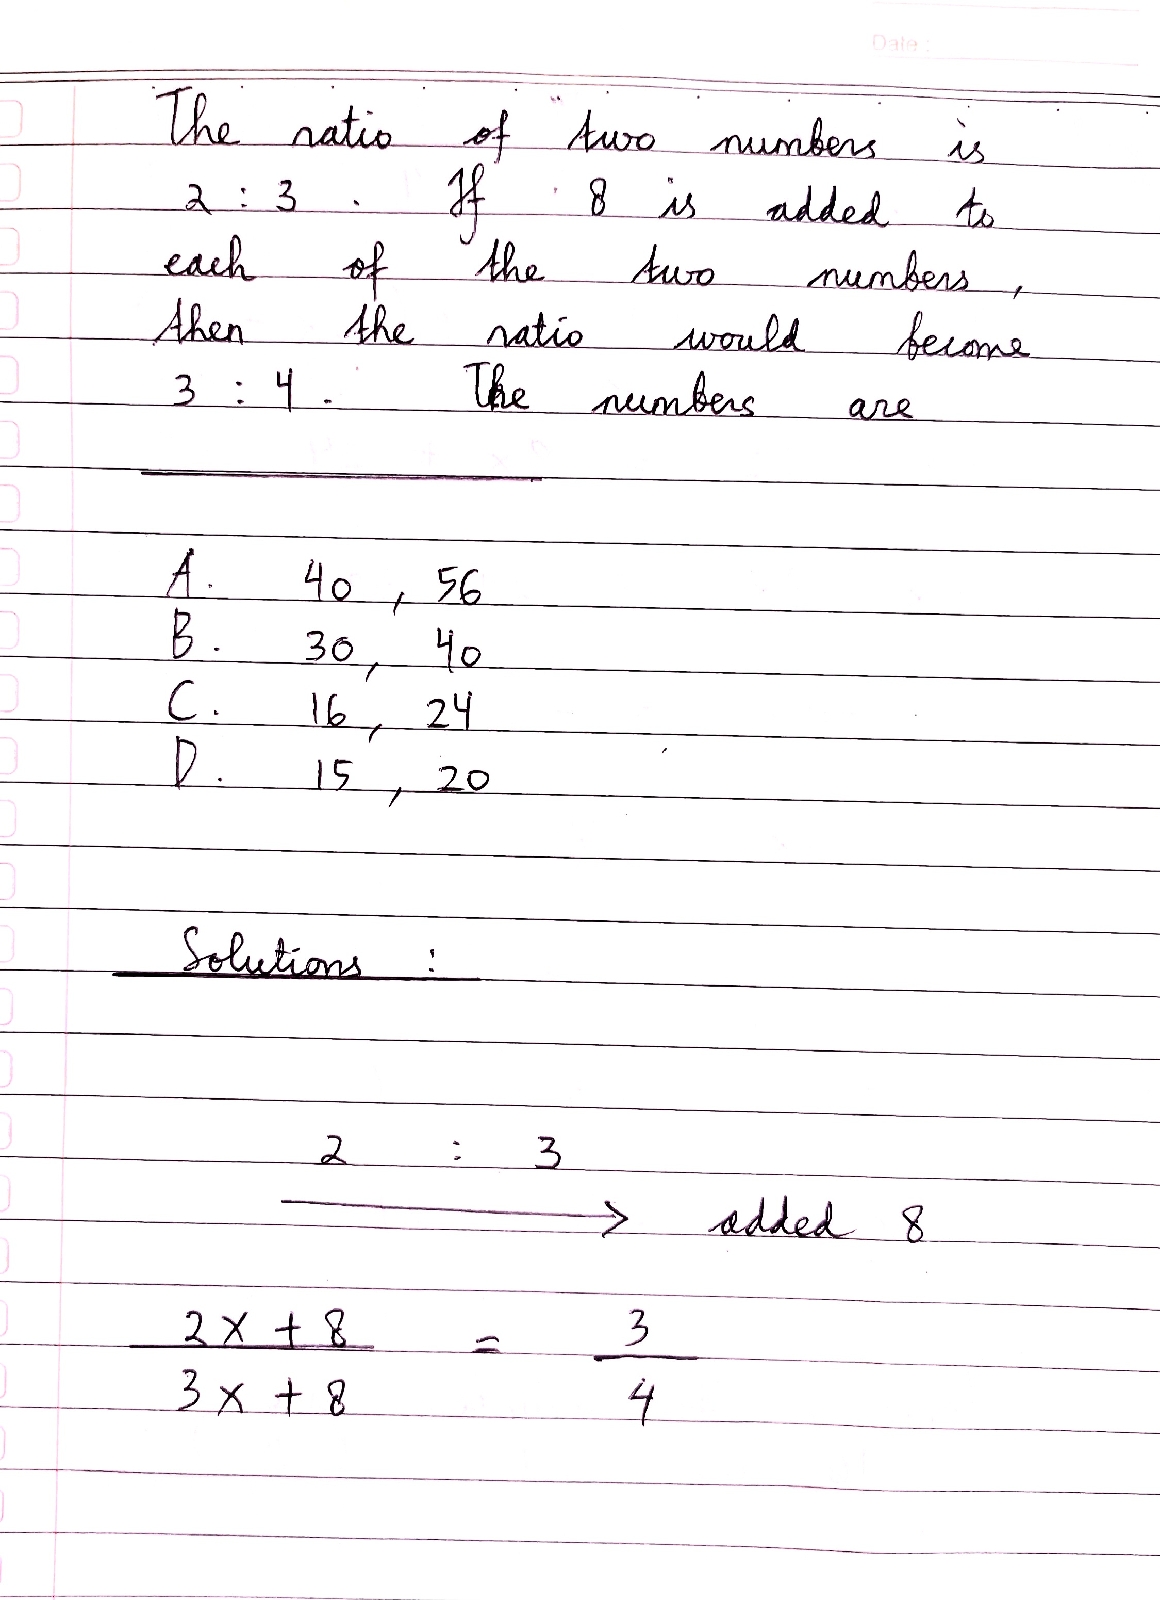 Date :
The ratio of two numbers is
2 : 3 . If 8 is added to
each of the two numbers ,
then the ratio would become
3 : 4 . The numbers are
A. 40 , 56
B. 30 , 40
C. 16 , 24
D. 15 , 20
Solutions :
2 : 3
→ added 8
2x + 8 = 3
3x + 8 4